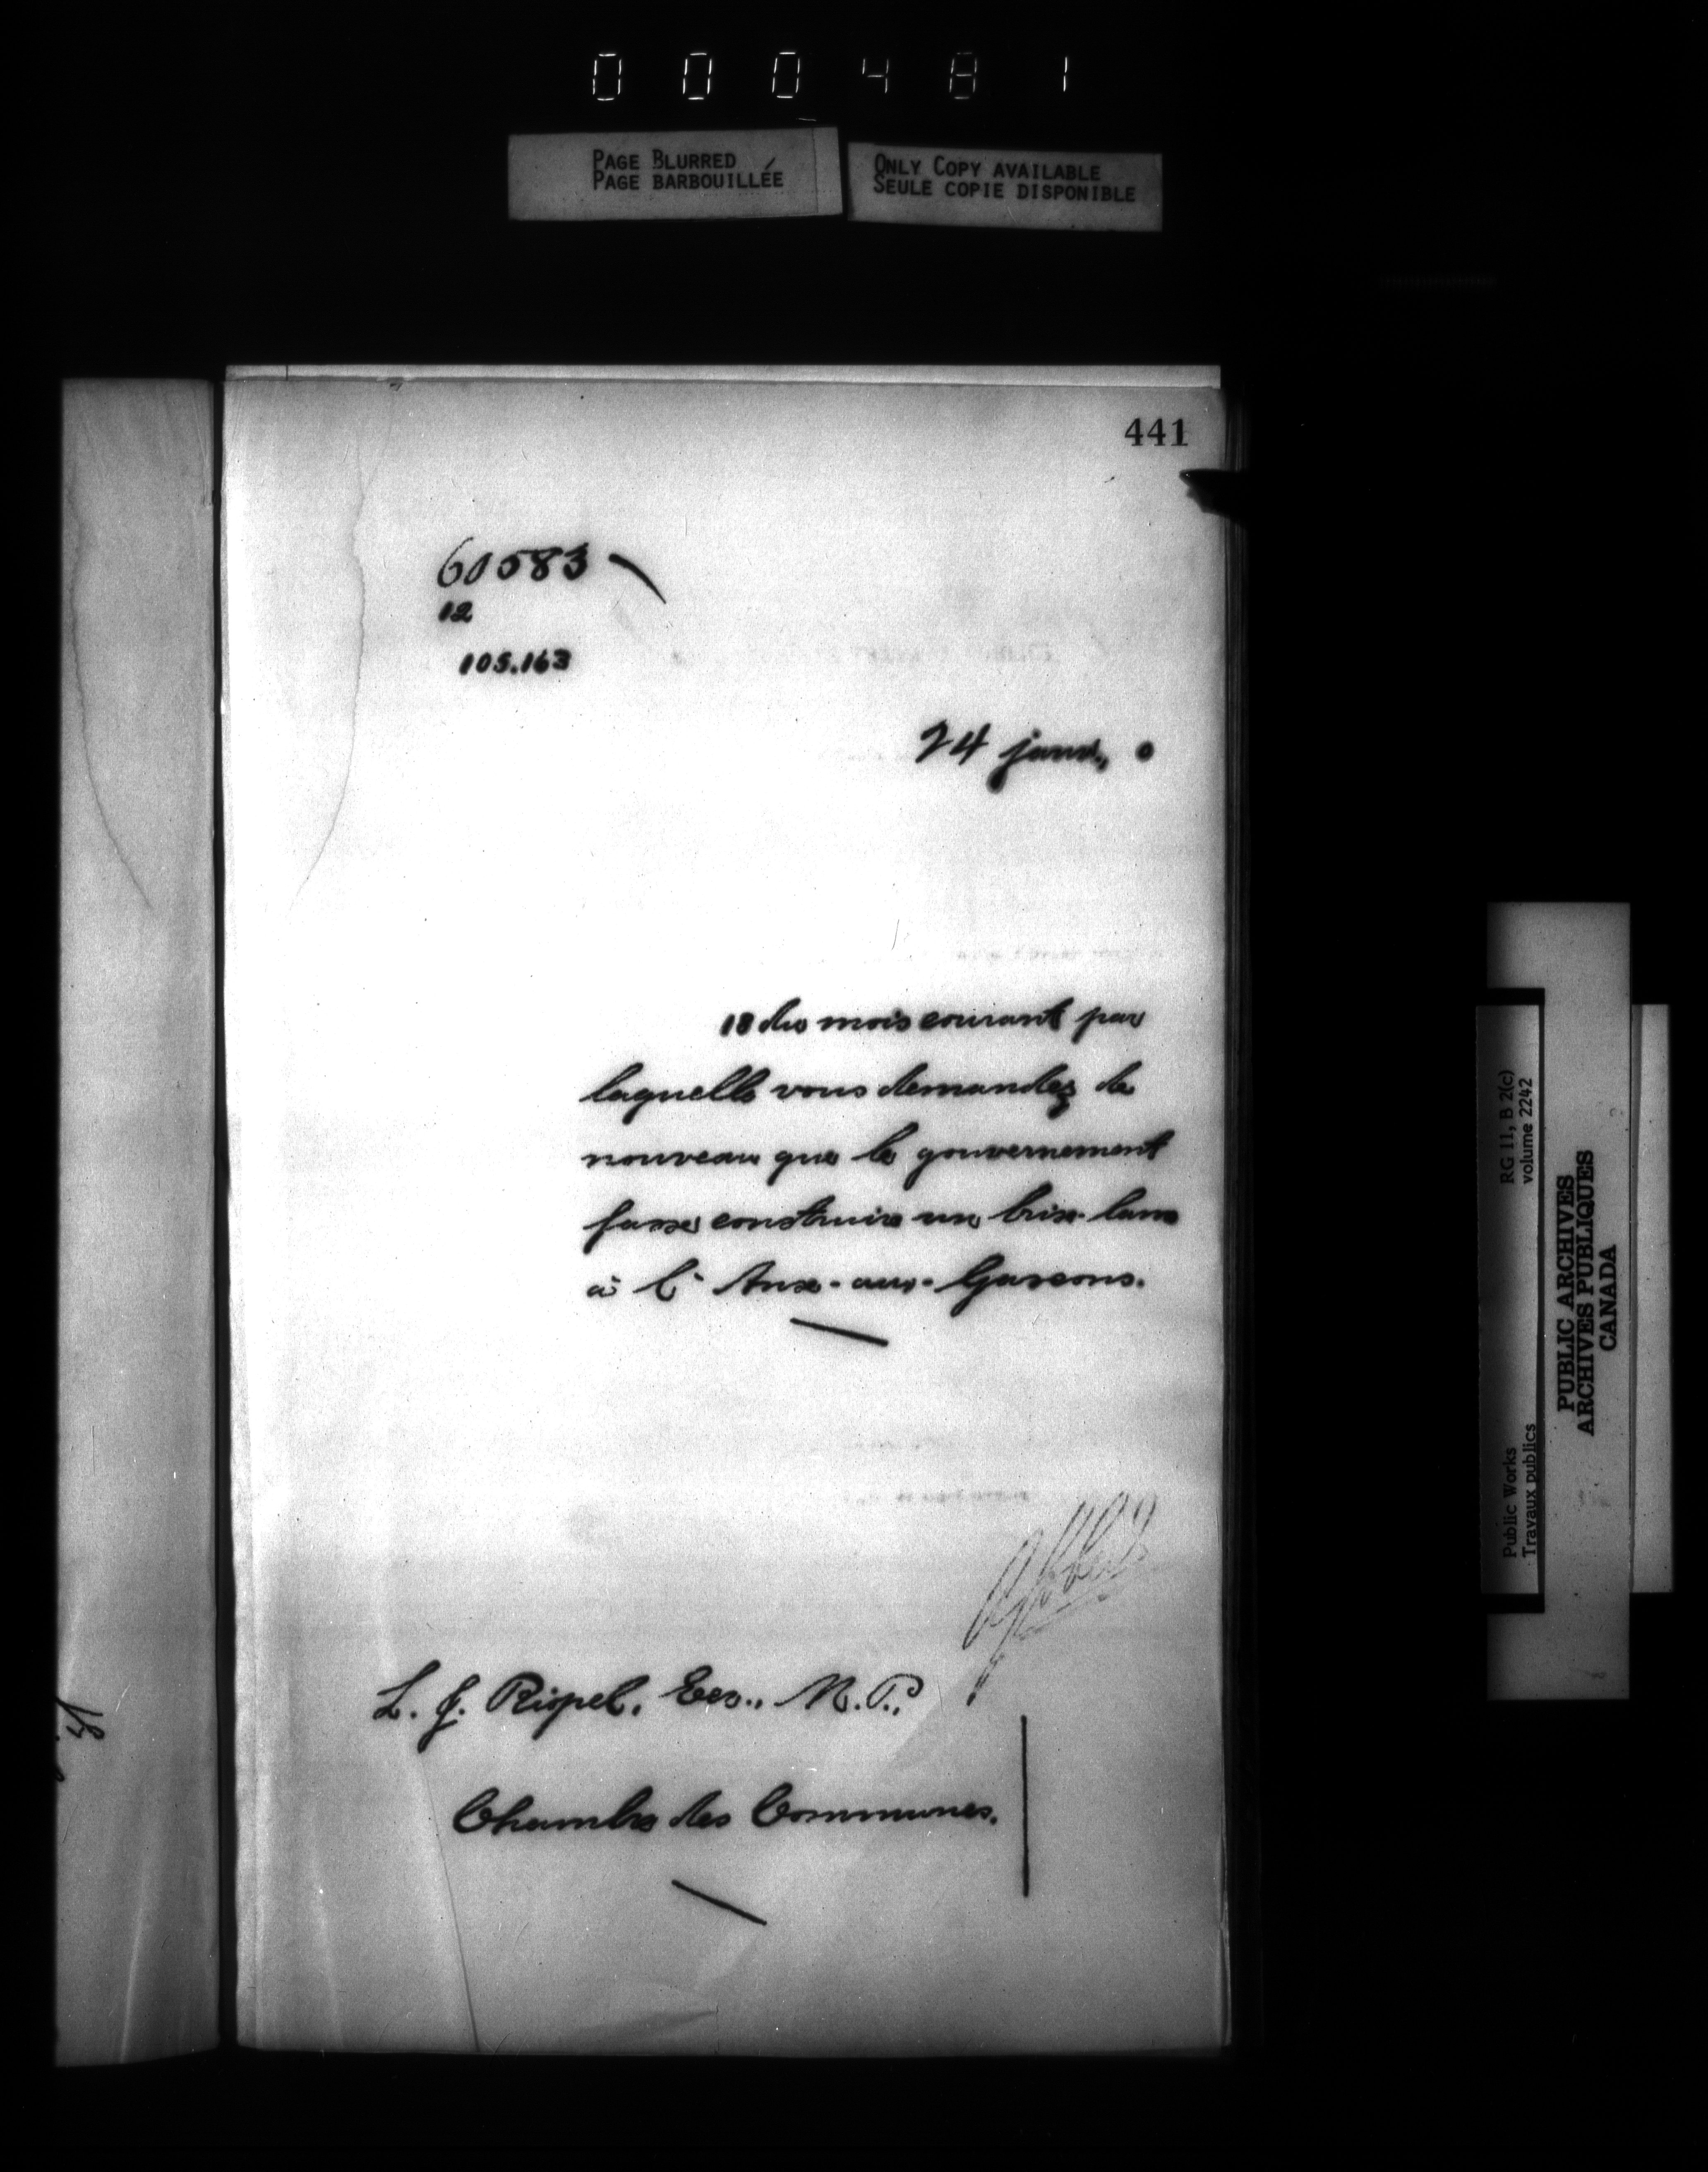 000481
PAGE BLURRED
PAGE BARBOUILLÉE
ONLY COPY AVAILABLE
SEULE COPIE DISPONIBLE
441
60583
12
105.163
24 janv., 0
18 du mois courant par
laquelle vous demandez de
nouveau que le gouvernement
fasse construire un brise-lame
à l'Anse-aux-Gascons.
L. J. Riopel, Ecr., M.P.,
Chambre des Communes.
Public Works
Travaux publics
RG 11, B 2(c)
volume 2242
PUBLIC ARCHIVES
ARCHIVES PUBLIQUES
CANADA